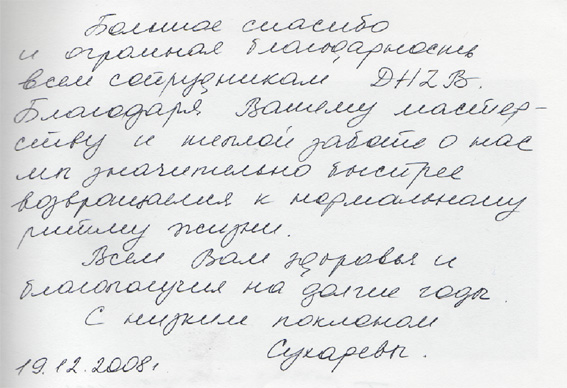 Большое спасибо
и огромная благодарность
всем сотрудникам DHZB.
Благодаря Вашему мастер-
ству и теплой заботе о нас
мы значительно быстрее
возвращаемся к нормальному
ритму жизни.
Всем Вам здоровья и
благополучия на долгие годы.
С низким поклоном
Сухаревы.
19.12.2008г.